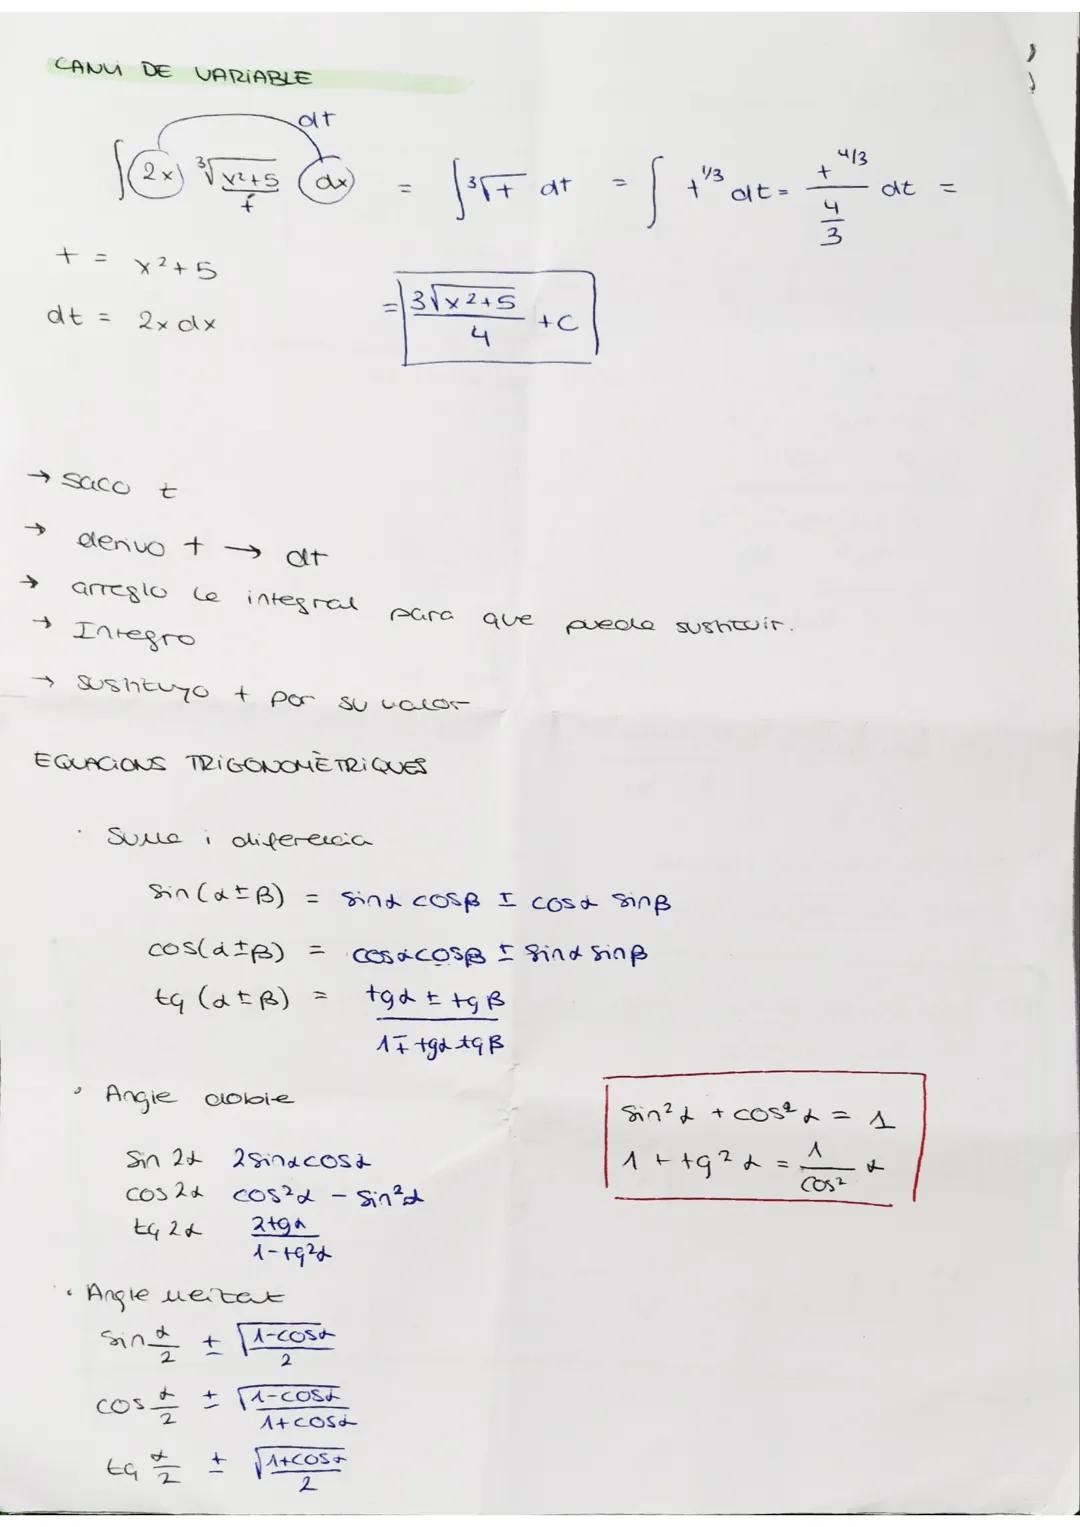 CANVI DE VARIABLE
dt
∫ 2x ∛(x²+5) dx = ∫ ∛t dt = ∫ t^1/3 dt = t^4/3 / (4/3) dt =
t
t = x²+5
dt = 2x dx
= 3√(x²+5) / 4 + C
→ saco t
→ derivo t → dt
→ arreglo la integral para que pueda sustituir.
→ Integro
→ sustituyo t por su valor
EQUACIONS TRIGONOMÈTRIQUES
· Suma i diferencia
sin(α±β) = sinα cosβ ± cosα sinβ
cos(α±β) = cosα cosβ ± sinα sinβ
tg (α±β) = (tgα ± tgβ) / (1∓tgα tgβ)
· Angle doble
sin 2α 2sinαcosα
cos 2α cos²α - sin²α
tg 2α 2tgα / (1-tg²α)
sin²α + cos²α = 1
1 + tg²α = 1/cos² α
· Angle meitat
sin α/2 ± √((1-cosα)/2)
cos α/2 ± √((1-cosα)/(1+cosα))
tg α/2 ± √((1+cosα)/2)